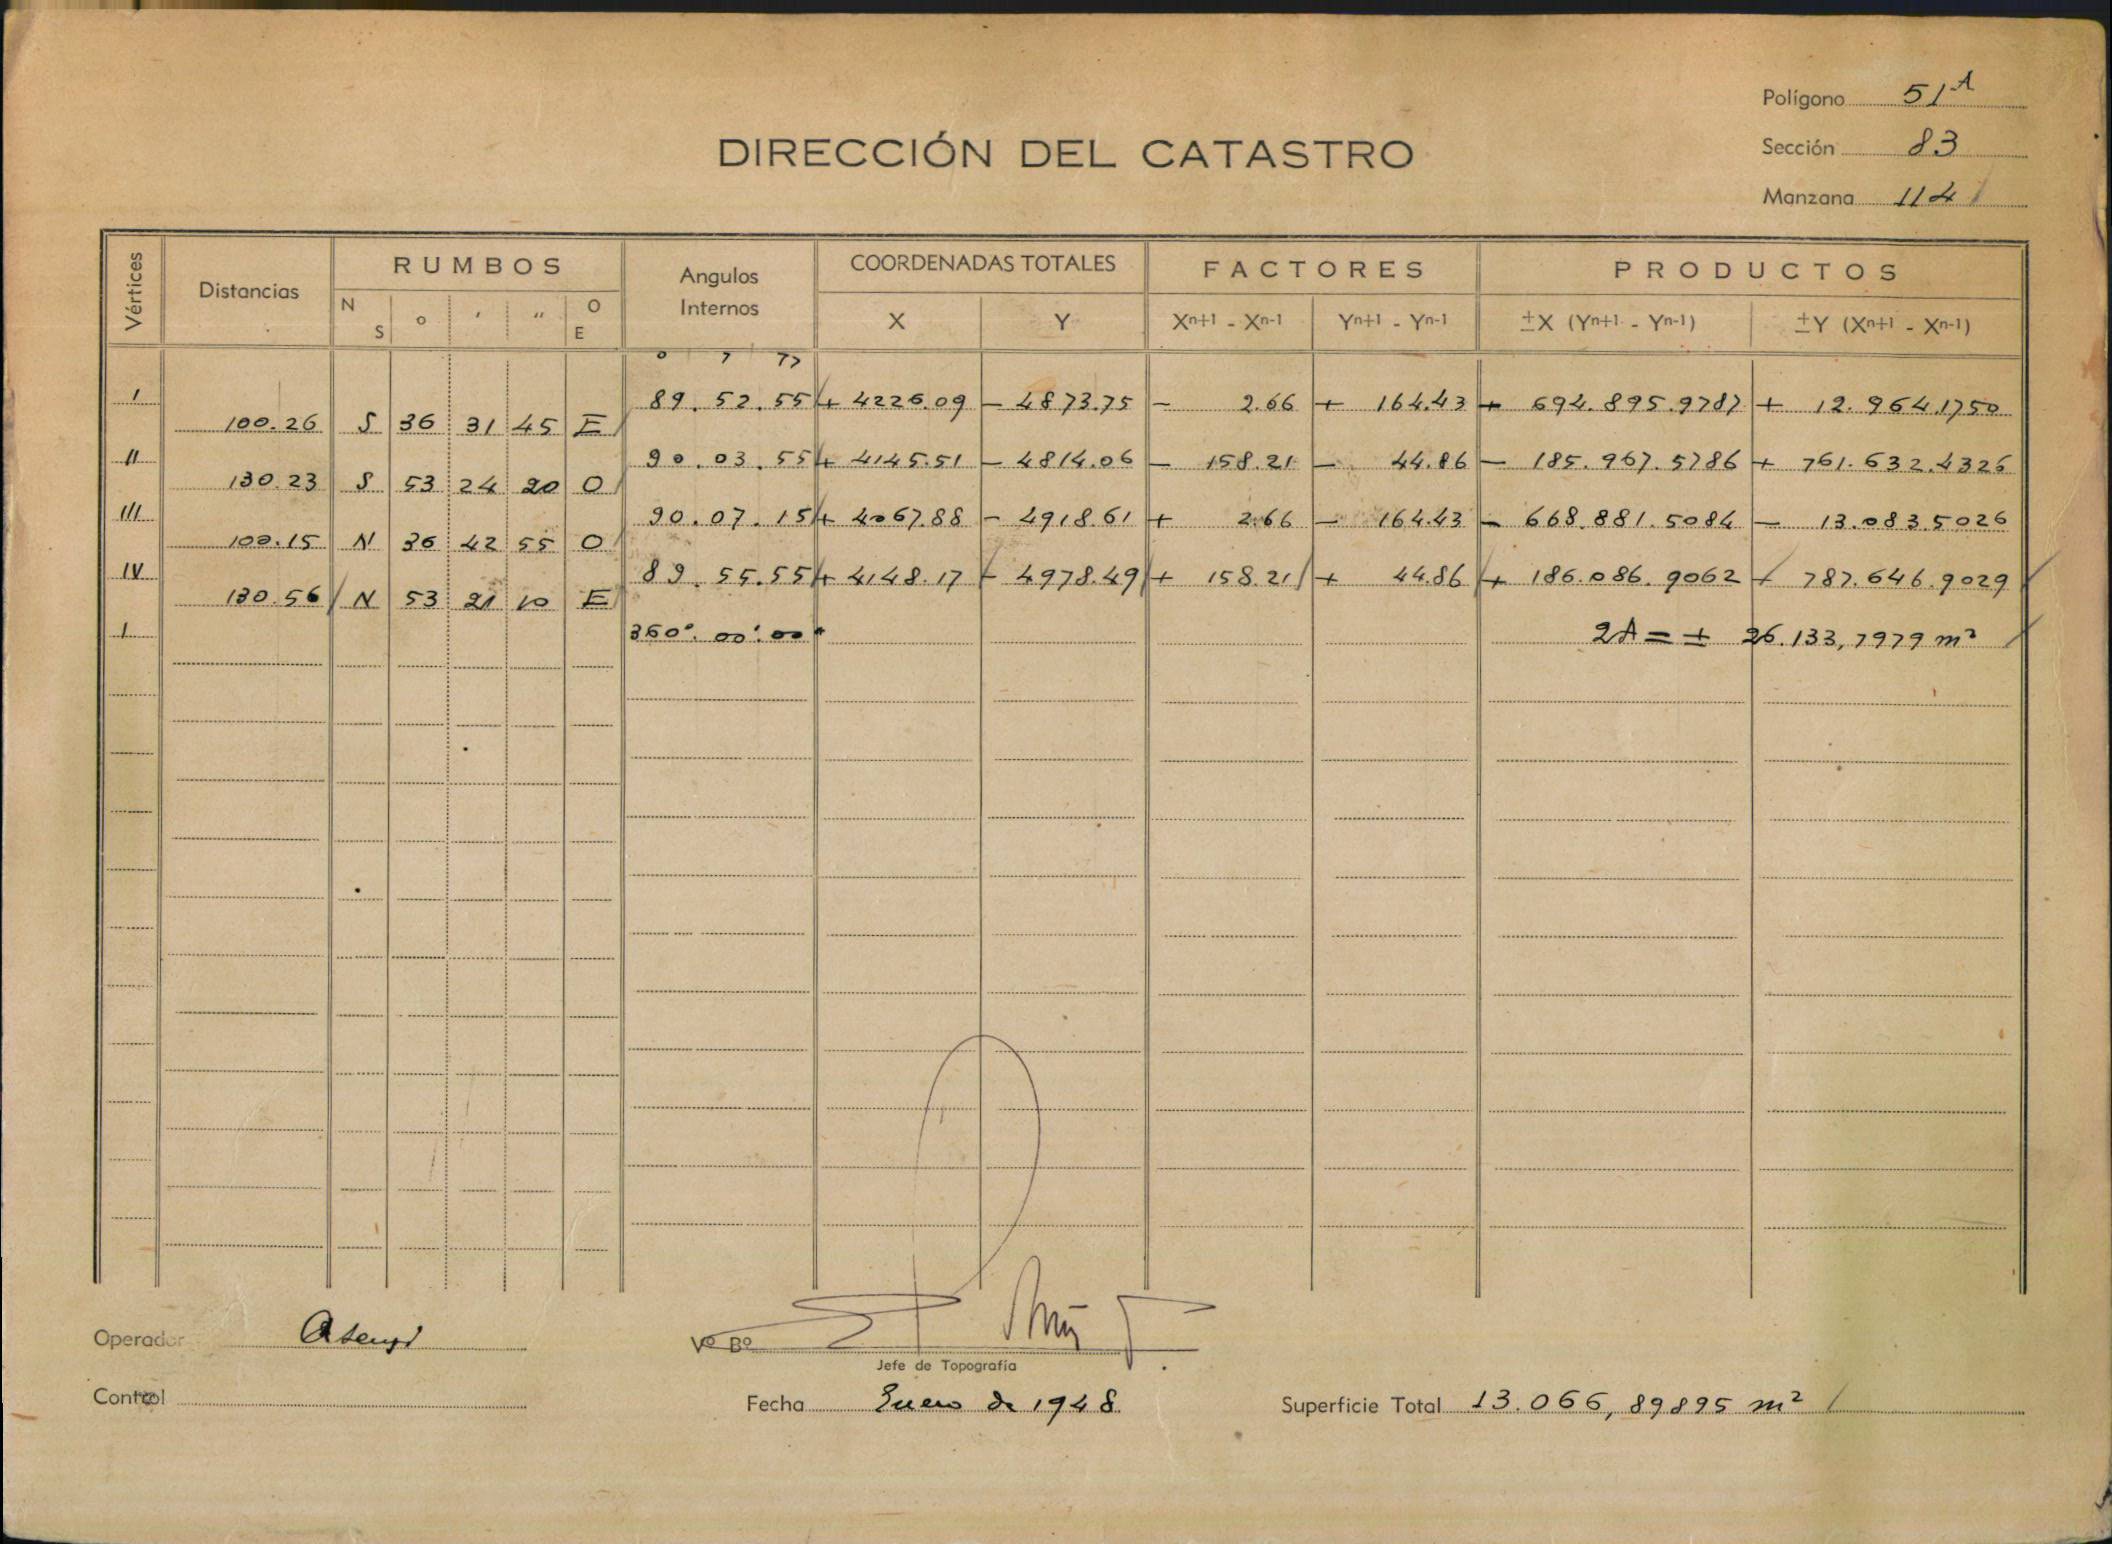 Polígono 51 A
DIRECCIÓN DEL CATASTRO
Sección 83
Manzana 114
Vértices Distancias RUMBOS Angulos Internos COORDENADAS TOTALES FACTORES PRODUCTOS
N S o ' " O E X Y Xn+1 - Xn-1 Yn+1 - Yn-1 ±X (Yn+1 - Yn-1) ±Y (Xn+1 - Xn-1)
I 89.52.55 + 4226.09 - 4873.75 - 2.66 + 164.43 + 694.895.9787 + 12.964.1750
100.26 S 36 31 45 E
II 90.03.55 + 4145.51 - 4814.06 - 158.21 - 44.86 - 185.967.5786 + 761.632.4326
130.23 S 53 24 20 O
III 90.07.15 + 4067.88 - 4918.61 + 2.66 - 164.43 - 668.881.5084 - 13.083.5026
100.15 N 36 42 55 O
IV 89.55.55 + 4148.17 - 4978.49 + 158.21 + 44.86 + 186.086.9062 - 787.646.9029
130.56 N 53 21 10 E
I 360°.00'.00" 2A = + 26.133,7979 m²
Operador
Vº Bº
Jefe de Topografía
Control
Fecha Enero de 1948
Superficie Total 13.066,89895 m²